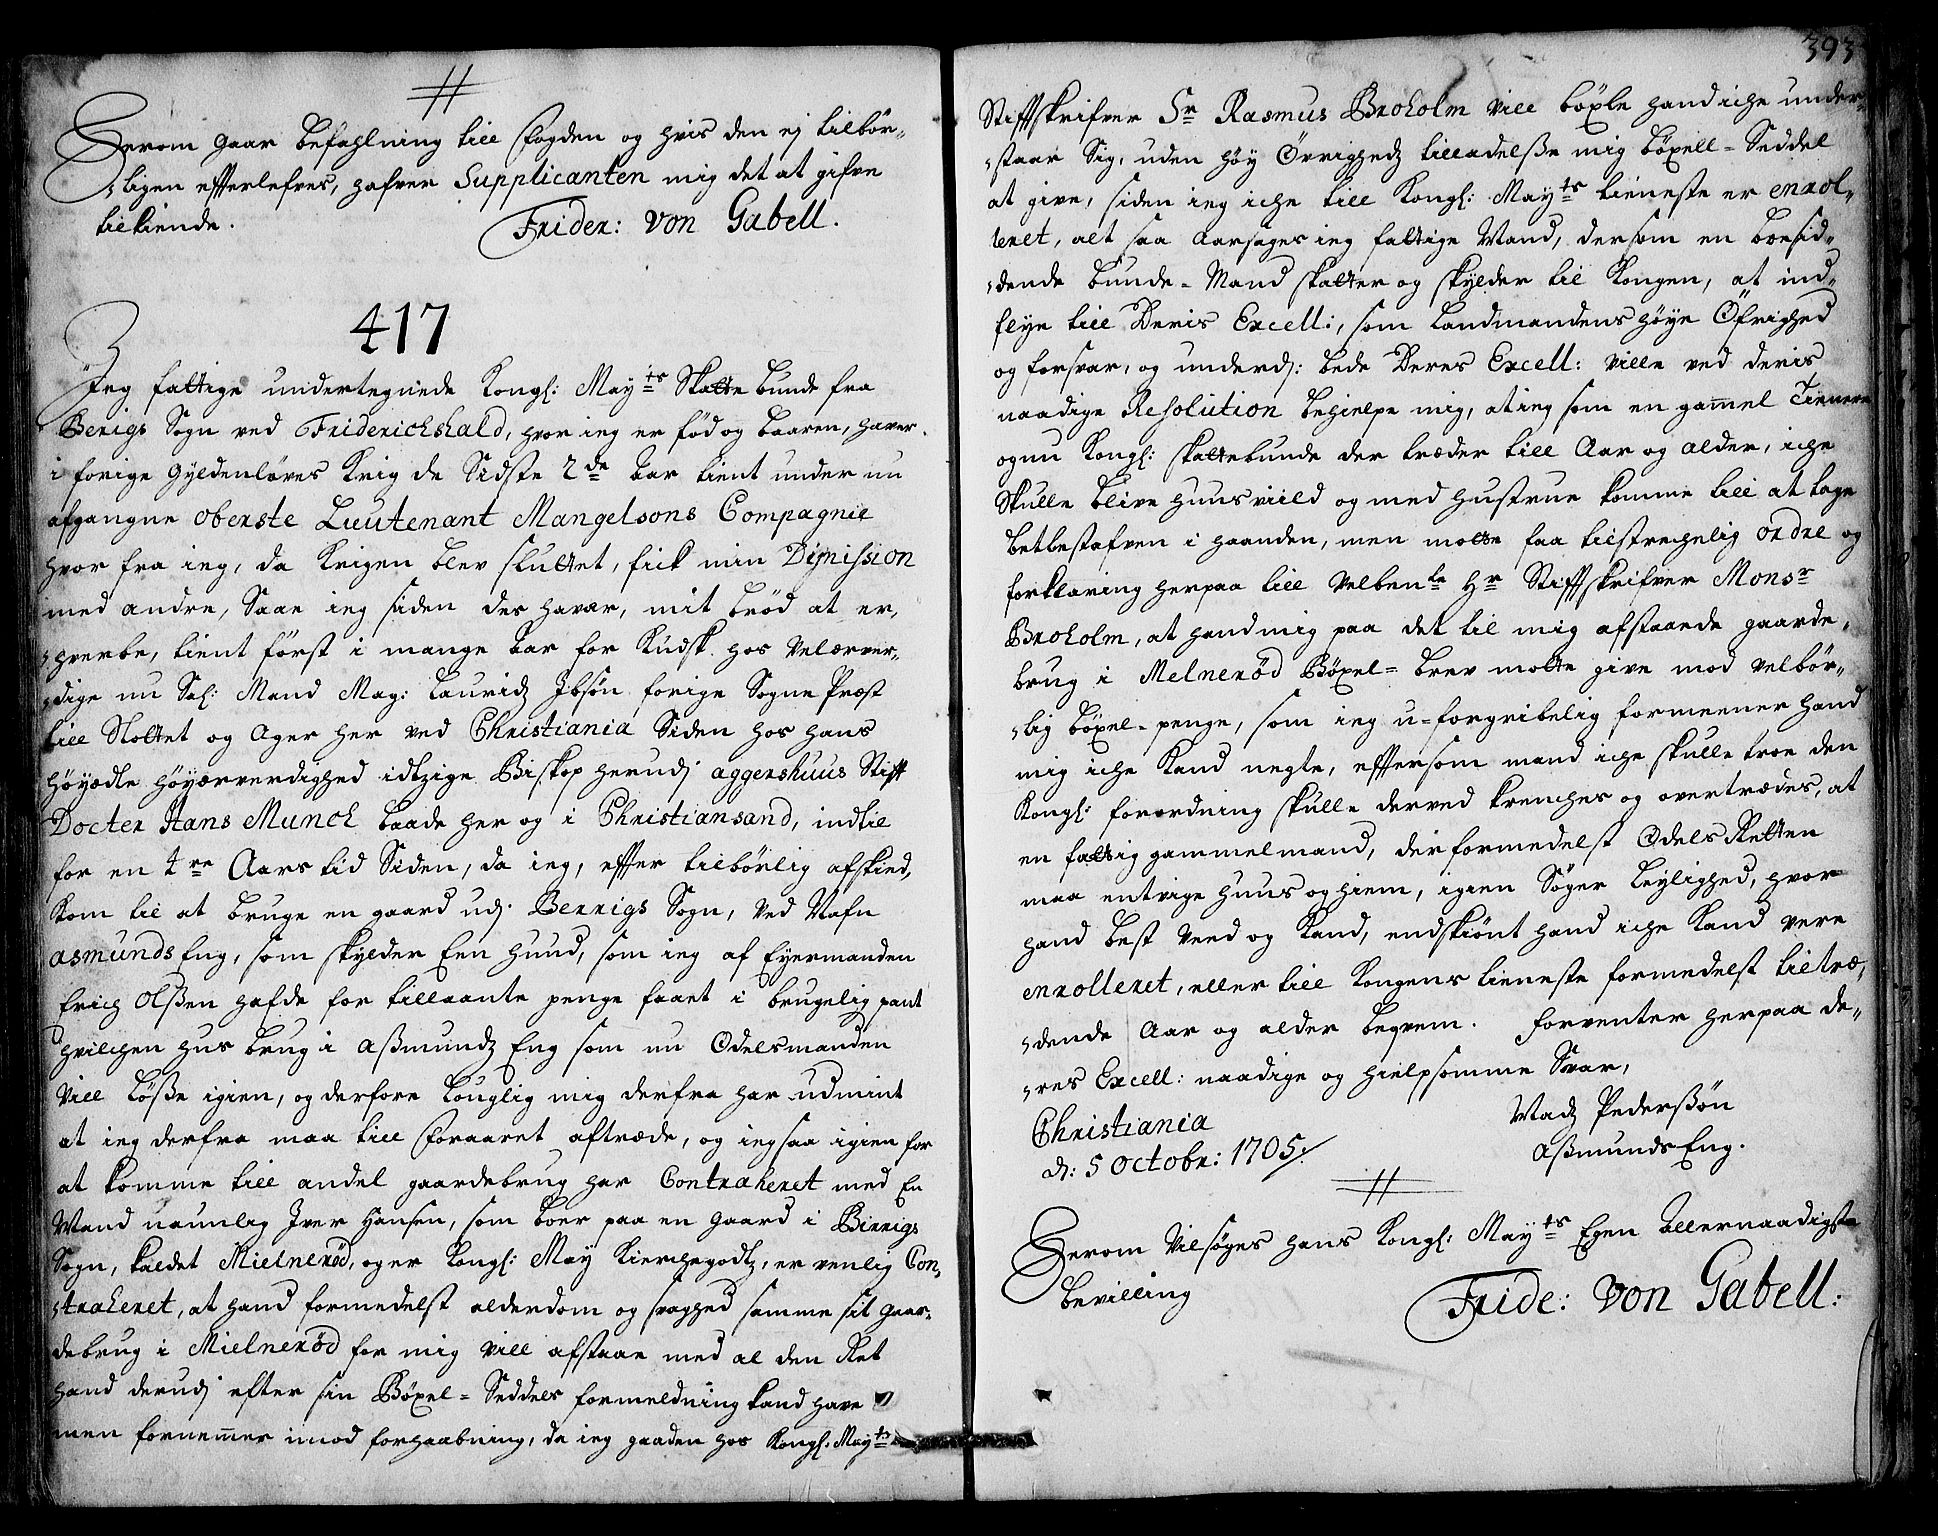 Herom gaar befahlning till Fogden og hvis den ej tilbør-
ligen efterlefves, hafver Supplicanten mig det at gifve
tilkiende. Frider: von Gabell.
417
Jeg fattige undertegnede Kongl: Mayts Skatte bunde fra
Berigs Sogn ved Friderichshald, hvor ieg er fød og baaren, haver
i forige Gyldenløves Krig de Sidste 2de Aar tient under nu
afgangne Oberste Lieutenant Mangelsons Compagnie
hvor fra ieg, da Krigen blev sluttet, fick min Dimission
med andre, Saae ieg siden des havar, mit brød at er,
hverbe, tient først i mange Aar for Kudsk hos velærver-
dige nu Sal: Mand Mag: Lauridz Ibsøn forige Sogne Præst
till Slottet og Ager her ved Christiania Siden hos hans
høyædle høyærverdighed idtzige Biskop herudj Aggershuus Stift
Docter Hans Munch baade her og i Christiansand, indtil
for en tre Aars tid Siden, da ieg, effter tilbørlig afskied,
kom til at bruge en gaard udj Berrigs Sogn, ved Nafn
Asmunds Eng, som skylder Een Huud, som ieg af Eyermanden
Erich Olßen hafde for tillaante penge faaet i brugelig pant
hvilchen hus brug i Aßmundz Eng som nu Odelsmanden
vill løße igien, og derfore louglig mig derfra har udmint
at ieg derfra maa till Foraaret aftræde, og ieg saa igien for
at komme till andel gaardebrug har Contraheret med En
Mand naunlig Iver Hansen, som boer paa en Gaard i Birrigs
Sogn, kaldet Mielnerød, og er Kongl: May Kierchegodtz, er venlig Con,
traheret, at hand formedelst alderdom og svaghed samme sit gaar-
debrug i Mielnerød for mig vill afstaae med al den Ret
hand derudj efter sin Bøxel-Seddels formeldning kand have
men fornemmer imod forhaabning, da ieg gaaden hos Kongl: Mayts
393
Stifftskrifver Sr Rasmus Broholm vill bøxle hand iche under-
staar Sig, uden høy Øvrighedz tilladelße mig bøxell-Seddel
at give, siden ieg iche till Kongl: Mayts tieneste er enrol-
leret, alt saa aarsages ieg fattige Mand, dersom en boesid-
dende bunde-Mand skatter og skylder til Kongen, at ind-
flye till Deris Excell:, som Landmandens høye Øfrighed
og forsvar, og underdj: bede Deres Excell: ville ved deris
naadige Resolution behielpe mig, at ieg som en gammel Tienere
og nu Kongl: skattebunde der træder till Aar og alder, iche
skulle blive huusviild og med hustrue komme till at tage
betlestafven i haanden, men motte faa tilstrechelig ordre og
forklaring herpaa till Velbente Hr Stifftskrifver Monsr
Broholm, at hand mig paa det til mig afstaaede gaarde,
brug i Melnerød Bøxel-brev motte give mod velbør-
lig bøxel-penge, som ieg u-forgribelig formeener hand
mig iche kand negte, effersom mand iche skulle troe den
Kongl: forordning skulle derved krenches og overtrædes, at
en fattig gammel mand, der formedelst Odels Retten
maa entvige huus og hiem, igien Søger leylighed, hvor
hand best veed og kand, endskiønt hand iche kand vere
enrolleret, eller till Kongens tieneste formedelst tiltræ,
dende Aar og alder beqvem. Forventer herpaa de-
res Excell: naadige og hielpsomme Svar,
Christiania Madz Pederßøn
d: 5 Octobr: 1705. Aßmunds Eng.
Herom vilsøges hans Kongl: Mayts Egen Allernaadigste
bevilling Fride: von Gabell: